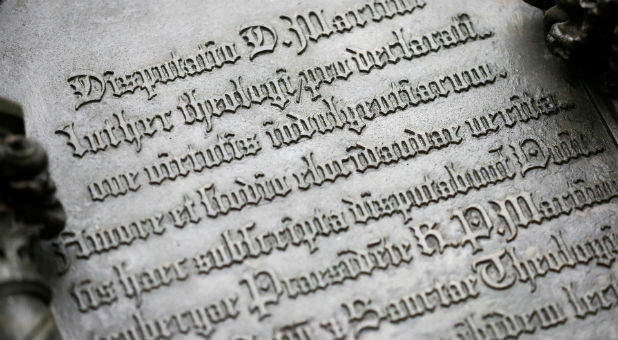 Disputatio D. Martini
Luther theologi, pro declarati=
one virtutis indulgentiarum.
Amore et studio elucidandae verita=
tis haec subscripta disputabunt Witte=
nbergae Praesidēte R. P. Martino
Sanctae Theologi
ibidem lect